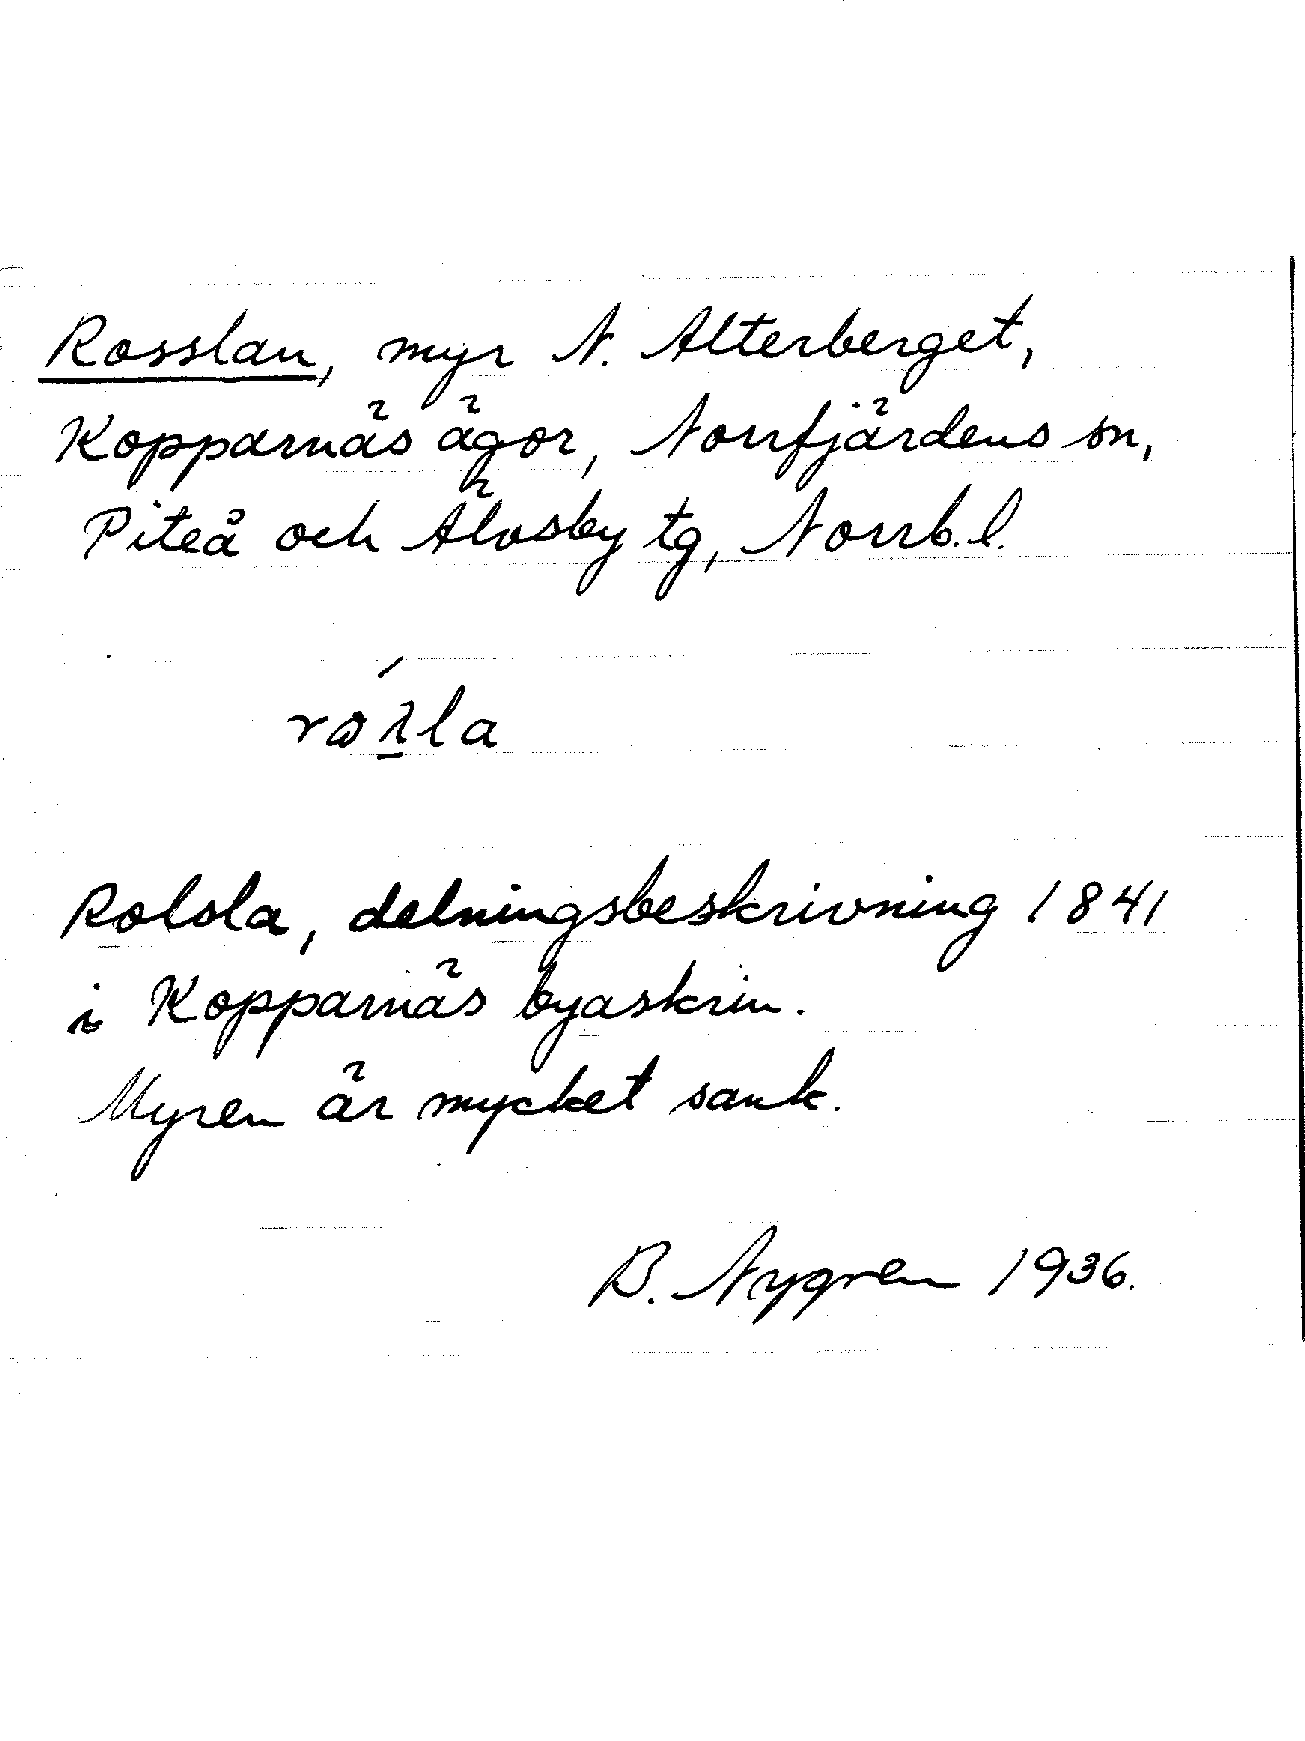 Rosslan, myr N. Alterberget,
Kopparnäs ägor, Norrfjärdens sn,
Piteå och Älvsby tg, Norrb. l.
Rolsla, delningsbeskrivning 1841
i Kopparnäs byaskrin.
Myren är mycket sank.
B. Nygren 1936.